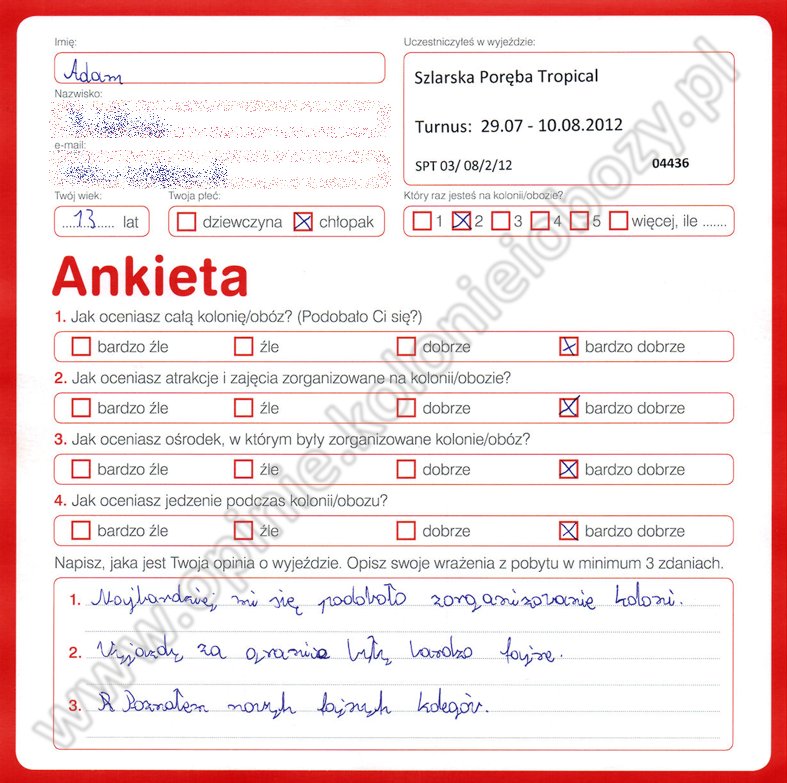 Imię:
Adam
Nazwisko:
e-mail:
Twój wiek:
13 lat
Twoja płeć:
dziewczyna chłopak
Uczestniczyłeś w wyjeździe:
Szlarska Poręba Tropical
Turnus: 29.07 - 10.08.2012
SPT 03/ 08/2/12 04436
Który raz jesteś na kolonii/obozie?
1 2 3 4 5 więcej, ile .......
Ankieta
1. Jak oceniasz całą kolonię/obóz? (Podobało Ci się?)
bardzo źle źle dobrze bardzo dobrze
2. Jak oceniasz atrakcje i zajęcia zorganizowane na kolonii/obozie?
bardzo źle źle dobrze bardzo dobrze
3. Jak oceniasz ośrodek, w którym były zorganizowane kolonie/obóz?
bardzo źle źle dobrze bardzo dobrze
4. Jak oceniasz jedzenie podczas kolonii/obozu?
bardzo źle źle dobrze bardzo dobrze
Napisz, jaka jest Twoja opinia o wyjeździe. Opisz swoje wrażenia z pobytu w minimum 3 zdaniach.
1. Najbardziej mi się podobało zorganizowanie koloni.
2. Wyjazdy za granice były bardzo fajne.
3. Poznałem nowych fajnych kolegów.
www.opinie.kolonieiobozy.pl